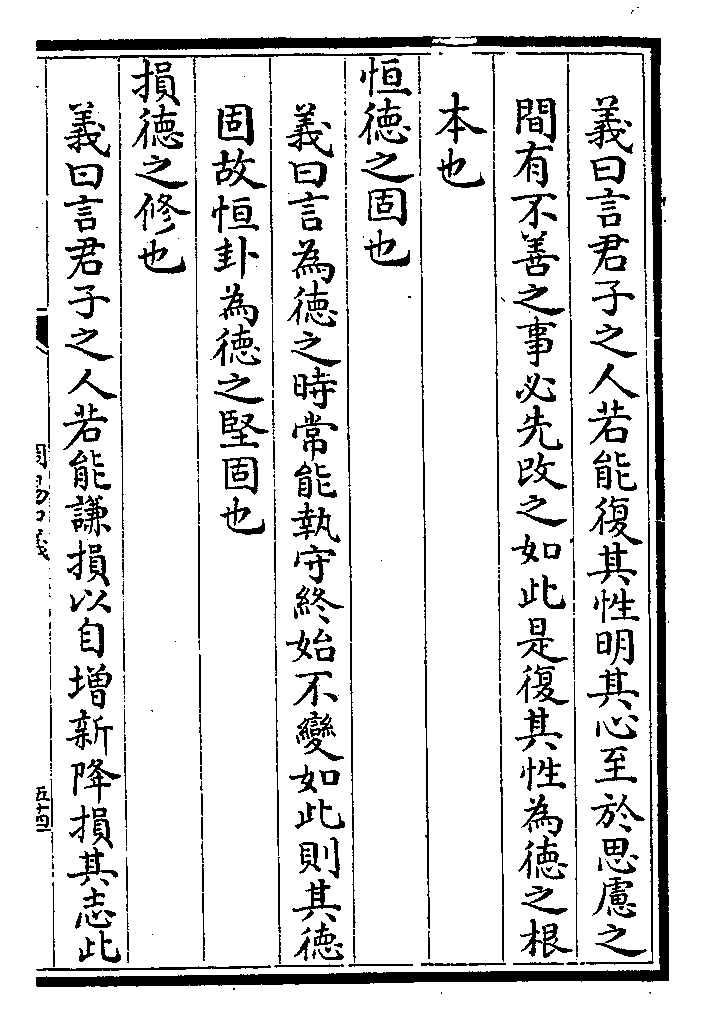 義曰言君子之人若能復其性明其心至於思慮之
間有不善之事必先改之如此是復其性為德之根
本也
恒德之固也
義曰言為德之時常能執守終始不變如此則其德
固故恒卦為德之堅固也
損德之修也
義曰言君子之人若能謙損以自增新降損其志此
周易口義
五十四